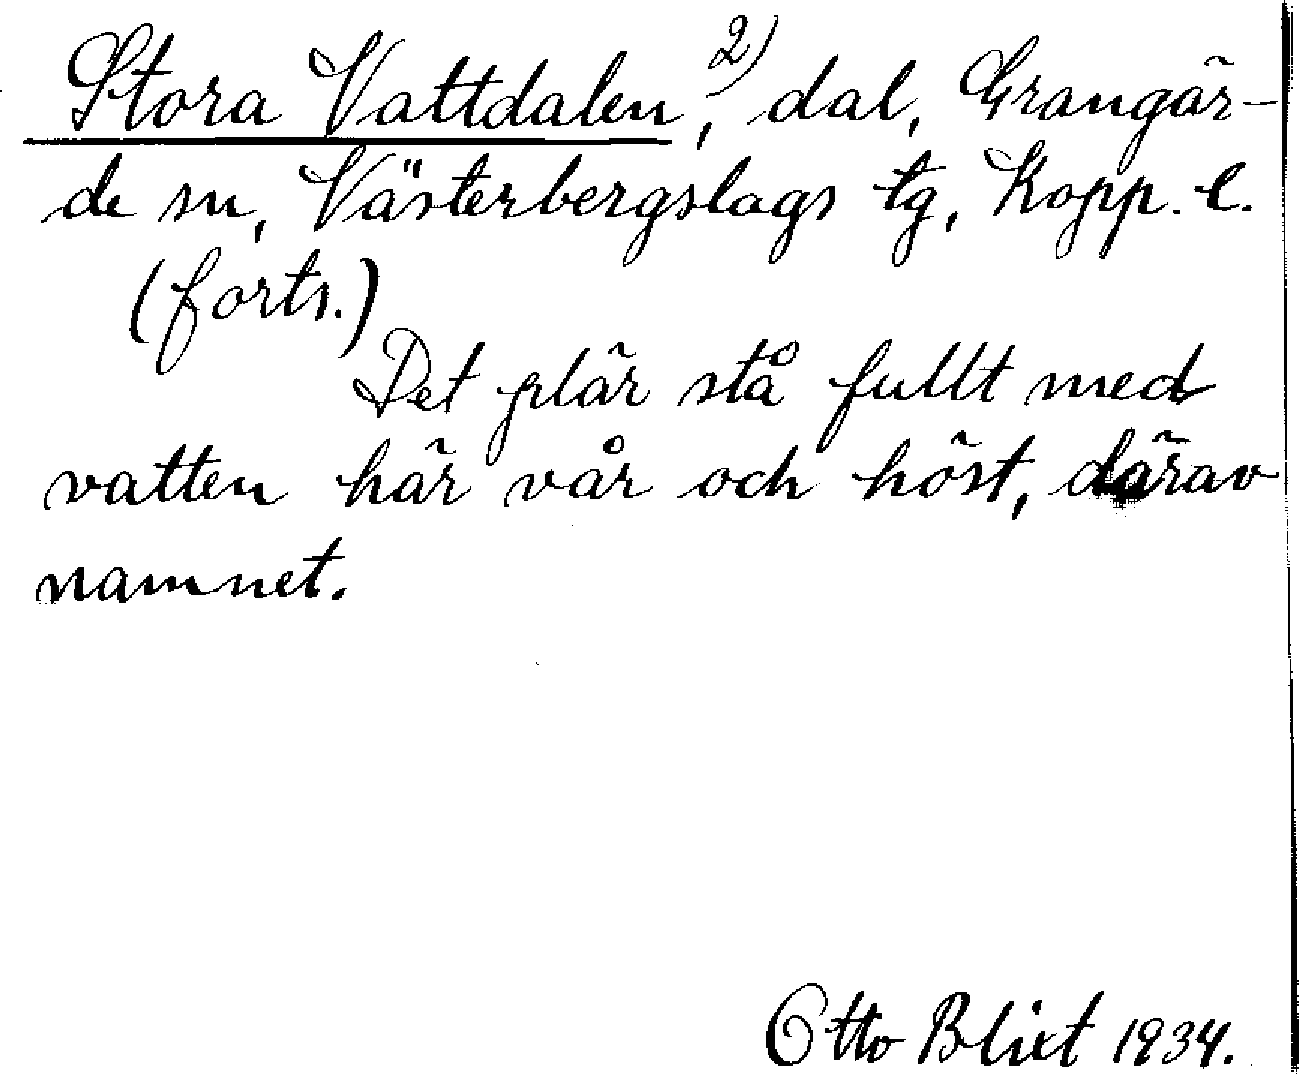 Stora Vattdalen,²⁾ dal, Grangär-
de sn, Västerbergslags tg, Kopp. l.
(forts.)
Det plär stå fullt med
vatten här vår och höst, därav
namnet.
Otto Blixt 1934.